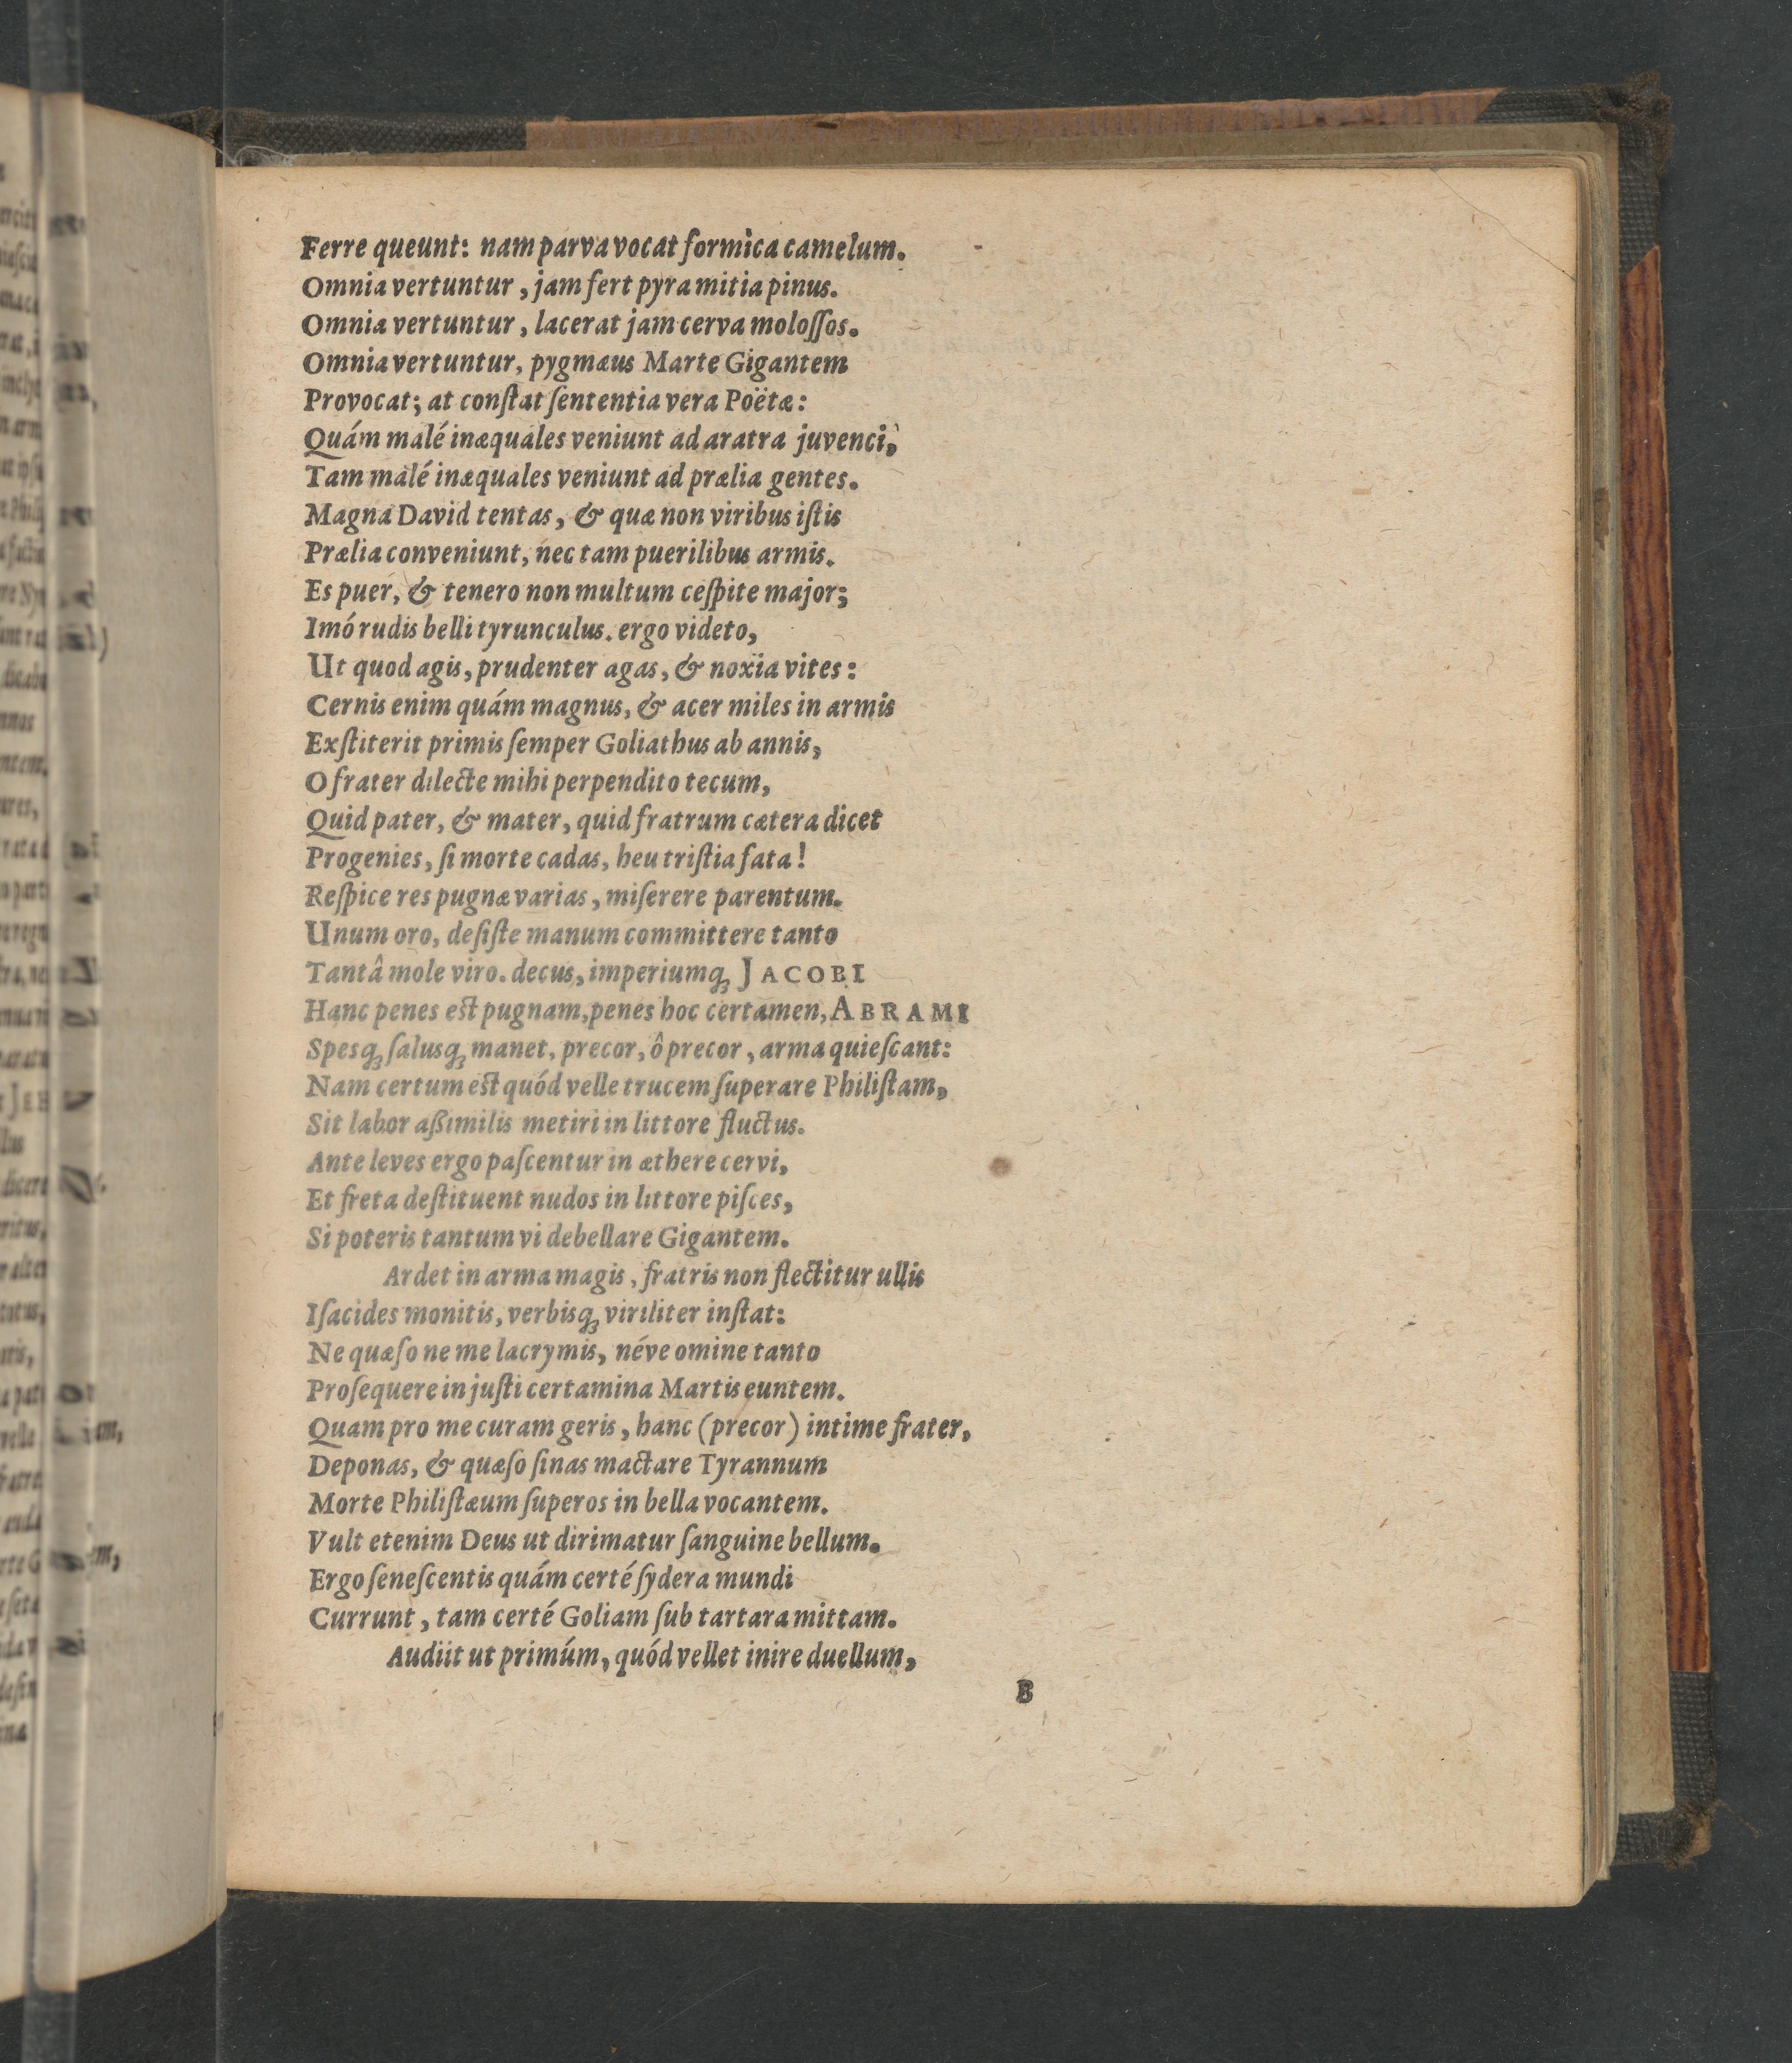 Ferre queunt: nam parva vocat formica camelum.
Omnia vertuntur, jam fert pyra mitia pinus.
Omnia vertuntur, lacerat jam cerva moloſſos.
Omnia vertuntur, pygmæus Marte Gigantem
Provocat; at conſtat ſententia vera Poëtæ:
Quám malé inæquales veniunt ad aratra juvenci,
Tam malé inæquales veniunt ad prælia gentes.
Magna David tentas, & quæ non viribus iſtis
Prælia conveniunt, nec tam puerilibus armis.
Es puer, & tenero non multum ceſpite major;
Imó rudis belli tyrunculus. ergo videto,
Ut quod agis, prudenter agas, & noxia vites:
Cernis enim quám magnus, & acer miles in armis
Exſtiterit primis ſemper Goliathus ab annis,
O frater dilecte mihi perpendito tecum,
Quid pater, & mater, quid fratrum cætera dicet
Progenies, ſi morte cadas, heu triſtia fata!
Reſpice res pugnæ varias, miſerere parentum.
Unum oro, deſiſte manum committere tanto
Tantâ mole viro. decus, imperiumq́ꝫ JACOBI
Hanc penes est pugnam, penes hoc certamen, ABRAMI
Spesq́ꝫ ſalusq́ꝫ manet, precor, ô precor, arma quieſcant:
Nam certum est quód velle trucem ſuperare Philiſtam,
Sit labor aßimilis metiri in littore fluctus.
Ante leves ergo paſcentur in æthere cervi,
Et freta deſtituent nudos in littore piſces,
Si poteris tantum vi debellare Gigantem.
Ardet in arma magis, fratris non flectitur ullis
Iſacides monitis, verbisq́ꝫ viriliter inſtat:
Ne quæſo ne me lacrymis, néve omine tanto
Proſequere injuſti certamina Martis euntem.
Quam pro me curam geris, hanc (precor) intime frater,
Deponas, & quæſo ſinas mactare Tyrannum
Morte Philiſtæum ſuperos in bella vocantem.
Vult etenim Deus ut dirimatur ſanguine bellum.
Ergo ſeneſcentis quám certé ſydera mundi
Currunt, tam certé Goliam ſub tartara mittam.
Audiit ut primúm, quód vellet inire duellum,
B